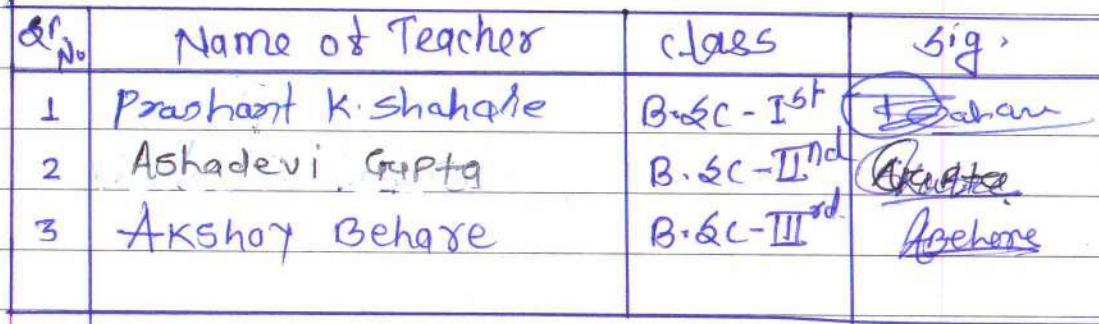 Sr. No Name of Teacher class sig.
1 Prashant K. Shahare B.Sc - Ist
2 Ashadevi Gupta B.Sc - IInd
3 Akshay Behare B.Sc - IIIrd Abehare